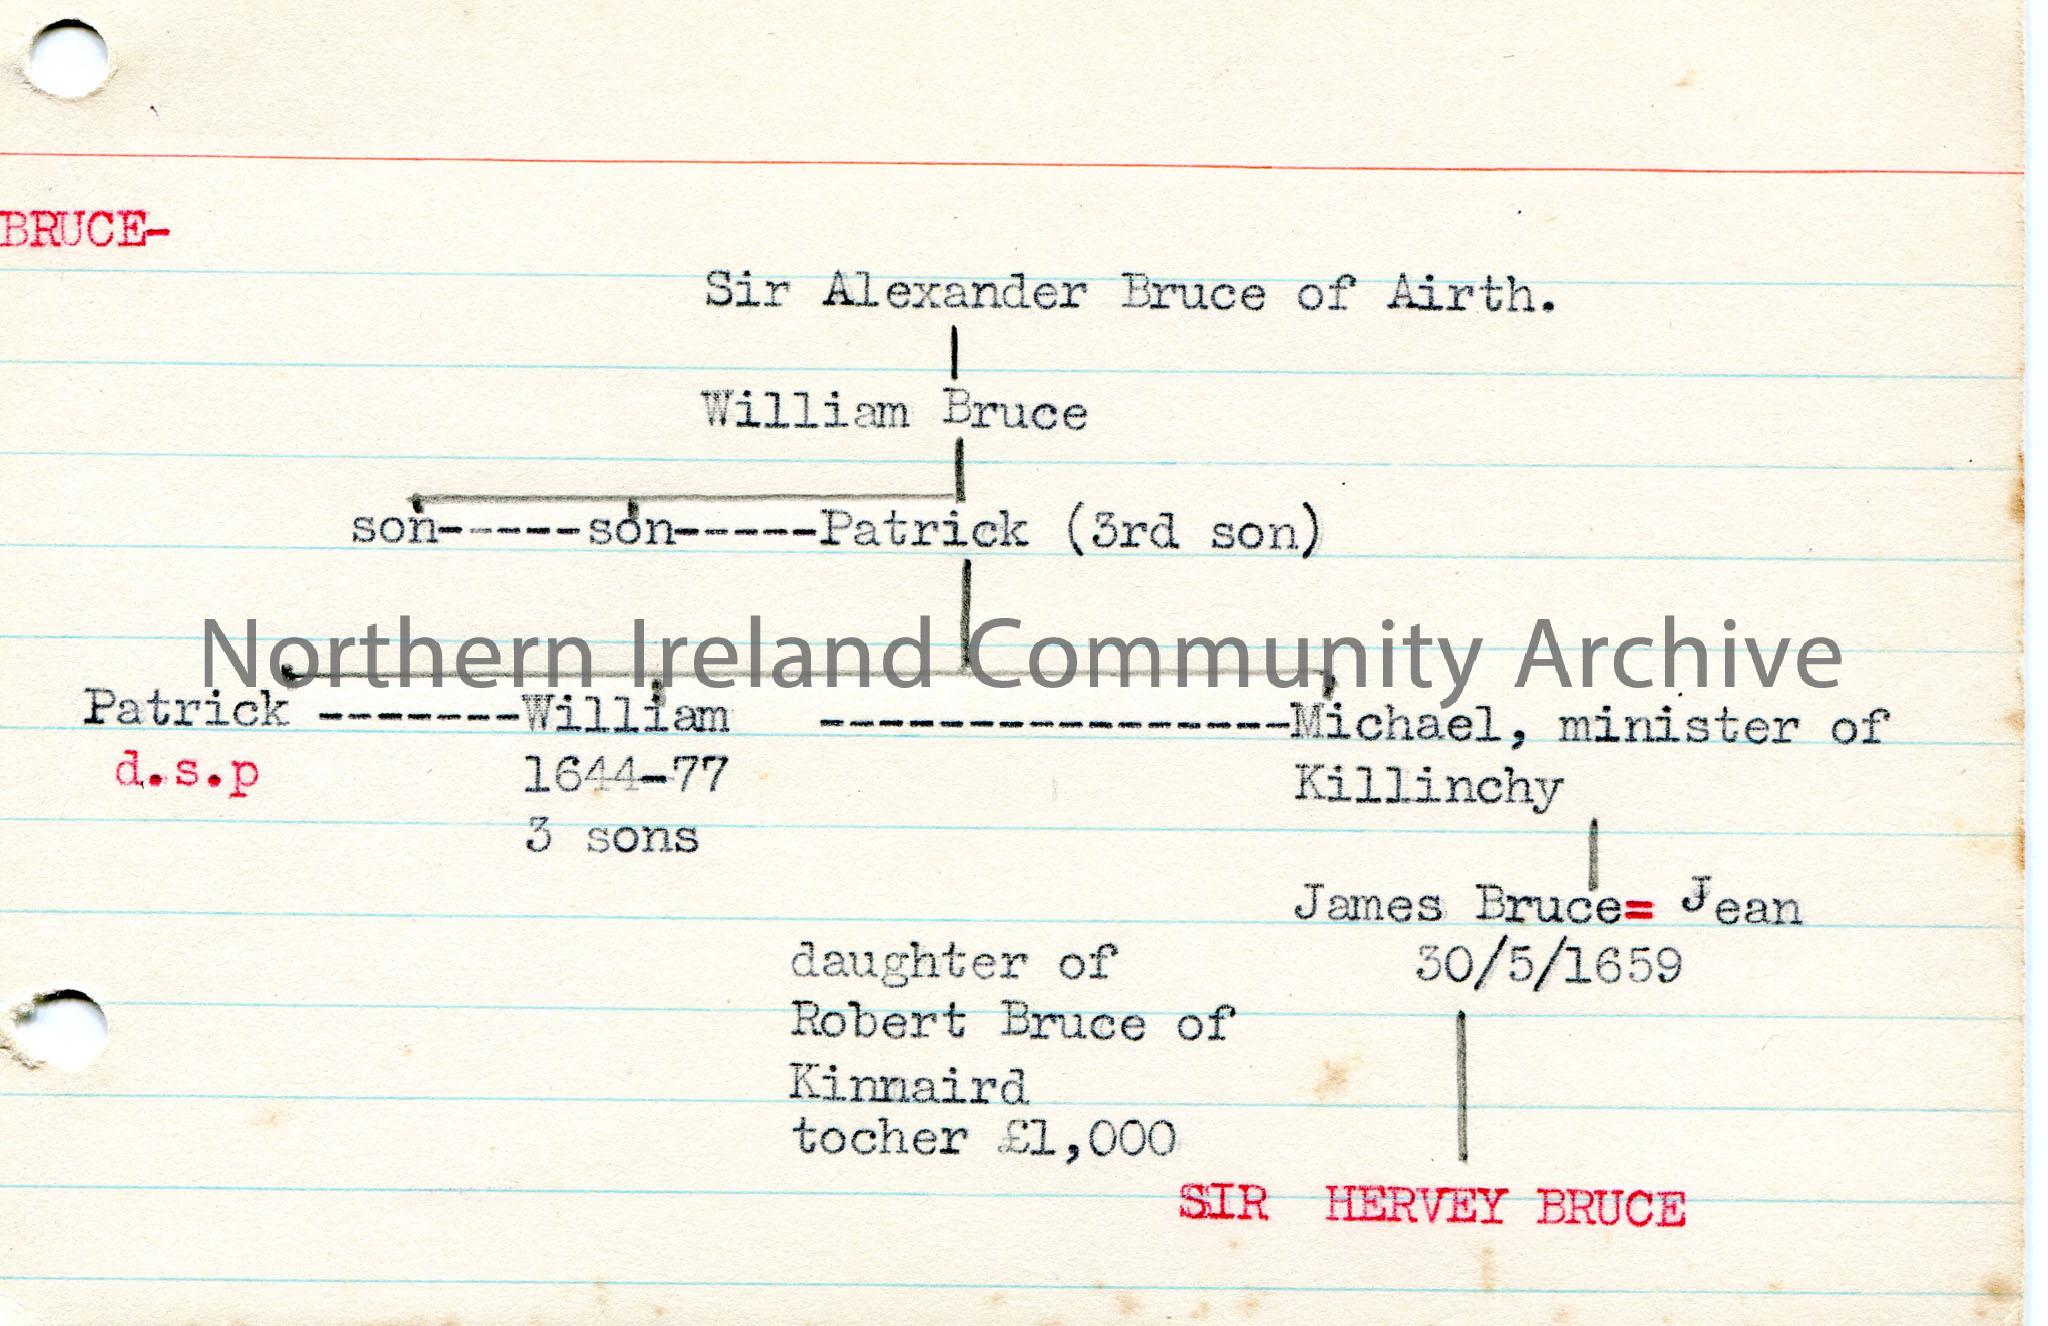 BRUCE-
Sir Alexander Bruce of Airth.
William Bruce
son-----son-----Patrick (3rd son)
Northern Ireland Community Archive
Patrick -------William ----------------Michael, minister of
d.s.p 1644-77 Killinchy
3 sons
James Bruce= Jean
daughter of 30/5/1659
Robert Bruce of
Kinnaird
tocher £1,000
SIR HERVEY BRUCE